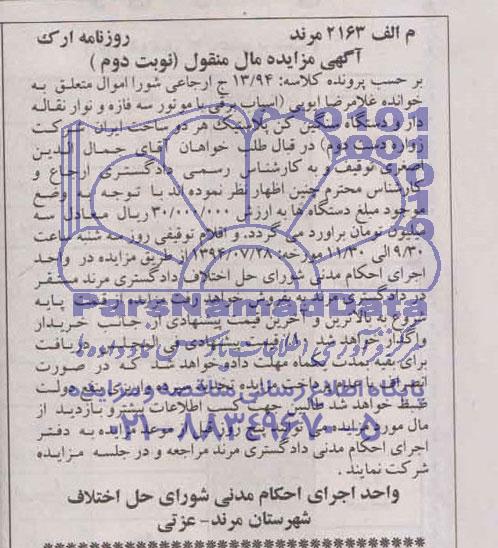 م الف ۲۱۶۳ مرند روزنامه ارک
آگهی مزایده مال منقول (نوبت دوم)
بر حسب پرونده کلاسه: ۱۳/۹۴ ج ارجاعی شورا اموال متعلق به
خوانده غلامرضا ایوبی (اسیاب برقی با موتور سه فازه و نوار نقاله
دار و دستگاه سنگین کن پلاستیک هر دو ساخت ایران شرکت
زواره دست دوم) در قبال طلب خواهان آقای جمال الدین
اصغری توقیف و به کارشناس رسمی دادگستری ارجاع و
کارشناس محترم چنین اظهار نظر نموده اند با توجه به وضع
موجود مبلغ دستگاه ها به ارزش ۳۰/۰۰۰/۰۰۰ ریال معادل سه
میلیون تومان براورد می گردد. و اقلام توقیفی روز سه شنبه ساعت
۹/۳۰ الی ۱۱/۳۰ مورخه: ۱۳۹۴/۰۷/۲۸ از طریق مزایده در واحد
اجرای احکام مدنی شورای حل اختلاف دادگستری مرند مستقر
در دادگستری مرند به فروش خواهد رفت مزایده از قیمت پایه
شروع به بالاترین و آخرین قیمت پیشنهادی از جانب خریدار
واگذار خواهد شد ۱۰٪ قیمت پیشنهادی فی المجلس دریافت
برای بقیه بمدت یکماه مهلت داده خواهد شد که در صورت
انصراف یا عدم پرداخت مزایده تجدید سپرده واریزی بنفع دولت
ضبط خواهد شد طالبین جهت کسب اطلاعات بیشتر و بازدید از
مال مورد مزایده می توانند پنج روز قبل از موعد مزایده به دفتر
اجرای احکام مدنی دادگستری مرند مراجعه و در جلسه مزایده
شرکت نمایند.
واحد اجرای احکام مدنی شورای حل اختلاف
شهرستان مرند- عزتی
ParsNamadData
پایگاه اطلاع رسانی مناقصه و مزایده
۰۲۱-۸۸۳۴۹۶۷۰-۵